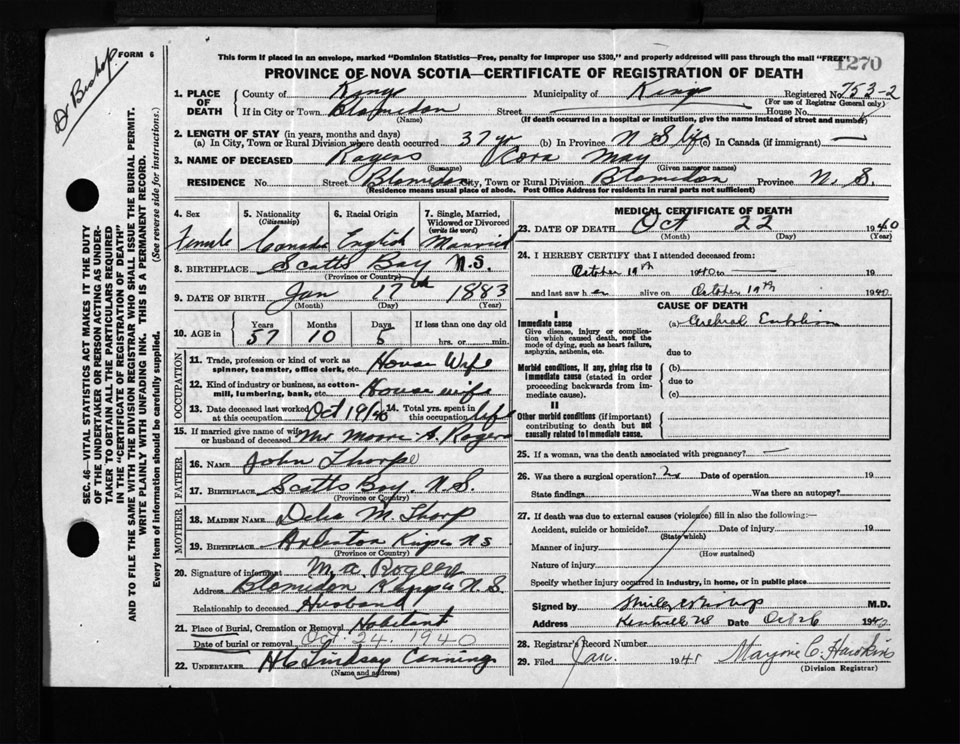 Dr Bishop
FORM 6
This form if placed in an envelope, marked "Dominion Statistics—Free, penalty for improper use $300," and properly addressed will pass through the mail "FREE"
1270
PROVINCE OF NOVA SCOTIA—CERTIFICATE OF REGISTRATION OF DEATH
1. PLACE OF DEATH
County of Kings Municipality of Kings Registered No. 753-2
(For use of Registrar General only)
If in City or Town Blomidon Street House No.
(Name) (If death occurred in a hospital or institution, give the name instead of street and number)
2. LENGTH OF STAY (in years, months and days)
(a) In City, Town or Rural Division where death occurred 37 yr (b) In Province N S life (c) In Canada (if immigrant) —
3. NAME OF DECEASED Rogers Cora May
(Surname) (Given name or names)
RESIDENCE No. Street Blomidon City, Town or Rural Division Blomidon Province N. S.
(Residence means usual place of abode. Post Office Address for residents in rural parts not sufficient)
SEC. 46—VITAL STATISTICS ACT MAKES IT THE DUTY
OF THE UNDERTAKER OR PERSON ACTING AS UNDER-
TAKER TO OBTAIN ALL THE PARTICULARS REQUIRED
IN THE "CERTIFICATE OF REGISTRATION OF DEATH"
AND TO FILE THE SAME WITH THE DIVISION REGISTRAR WHO SHALL ISSUE THE BURIAL PERMIT.
WRITE PLAINLY WITH UNFADING INK. THIS IS A PERMANENT RECORD.
Every item of Information should be carefully supplied. (See reverse side for instructions.)
4. Sex 5. Nationality (Citizenship) 6. Racial Origin 7. Single, Married, Widowed or Divorced (write the word)
Female Canada English Married
8. BIRTHPLACE Scotts Bay N.S.
(Province or Country)
9. DATE OF BIRTH Jan 17th 1883
(Month) (Day) (Year)
10. AGE in Years Months Days If less than one day old
57 10 5 hrs. or min.
OCCUPATION
11. Trade, profession or kind of work as spinner, teamster, office clerk, etc. House Wife
12. Kind of industry or business, as cotton-mill, lumbering, bank, etc. House wife
13. Date deceased last worked at this occupation Oct 19/40 14. Total yrs. spent in this occupation life
15. If married give name of wife or husband of deceased Mr Moore A. Rogers
FATHER
16. NAME John Thorpe
17. BIRTHPLACE Scotts Bay. N.S.
(Province or Country)
MOTHER
18. MAIDEN NAME M. Thorp
19. BIRTHPLACE Kings N S
(Province or Country)
20. Signature of informant M. A. Rogers
Address Blomidon Kings N. S.
Relationship to deceased Husband
21. Place of Burial, Cremation or Removal Habitant
Date of burial or removal Oct. 24. 1940
22. UNDERTAKER H C Lindsay Canning
(Name and address)
MEDICAL CERTIFICATE OF DEATH
23. DATE OF DEATH Oct 22 1940
(Month) (Day) (Year)
24. I HEREBY CERTIFY that I attended deceased from:
October 19th 1940 to — 19
and last saw h er alive on October 19th 1940
CAUSE OF DEATH
I
Immediate cause (a) Cerebral Embolism
Give disease, injury or complication which caused death, not the mode of dying, such as heart failure, asphyxia, asthenia, etc.
due to
Morbid conditions, if any, giving rise to immediate cause (stated in order proceeding backwards from immediate cause).
(b)
due to
(c)
II
Other morbid conditions (if important) contributing to death but not causally related to immediate cause.
25. If a woman, was the death associated with pregnancy? —
26. Was there a surgical operation? Date of operation 19
State findings Was there an autopsy?
27. If death was due to external causes (violence) fill in also the following:—
Accident, suicide or homicide? Date of injury 19
(State which)
Manner of injury
(How sustained)
Nature of injury
Specify whether injury occurred in industry, in home, or in public place
Signed by Bishop M.D.
Address Kentville NS Date Oct 26 1940
28. Registrar's Record Number
29. Filed Jan. 1941 Marjorie C. Hawkins
(Division Registrar)